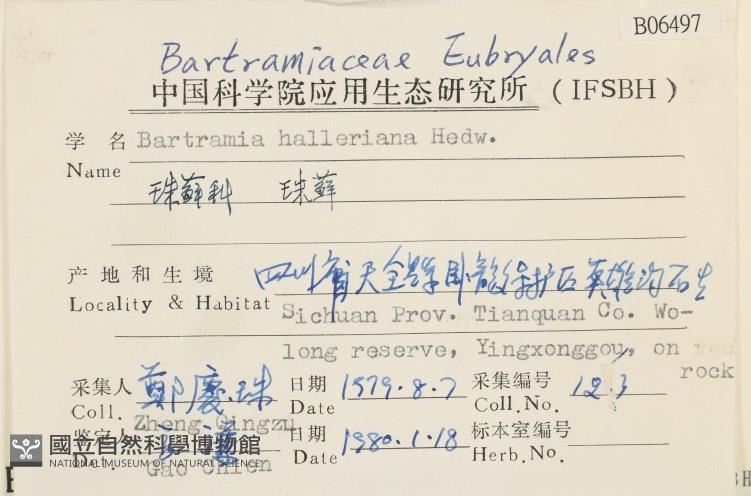 B06497
Bartramiaceae Eubryales
中国科学院应用生态研究所 (IFSBH)
学 名 Bartramia halleriana Hedw.
Name
珠藓科 珠藓
产地和生境 四川省天全县卧龙保护区英雄沟石生
Locality & Habitat Sichuan Prov. Tianquan Co. Wo-
long reserve, Yingxonggou, on red
rock
采集人 鄭慶珠 日期 1979.8.7 采集编号 123
Coll. Zheng Qingzu Date Coll.No.
鉴定人 日期 1980.1.18 标本室编号
Gao Chien Date Herb.No.
國立自然科學博物館
NATIONAL MUSEUM OF NATURAL SCIENCE